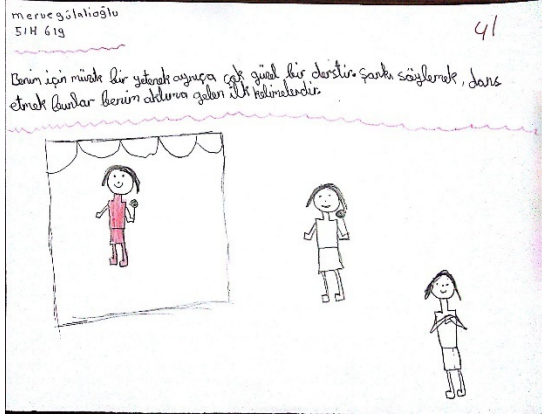 merve gülalioğlu
5/H 619
41
Benim için müzik bir yetenek ayrıyça çok güzel bir derstir. şarkı söylemek, dans
etmek bunlar benim aklıma gelen ilk kelimelerdir.